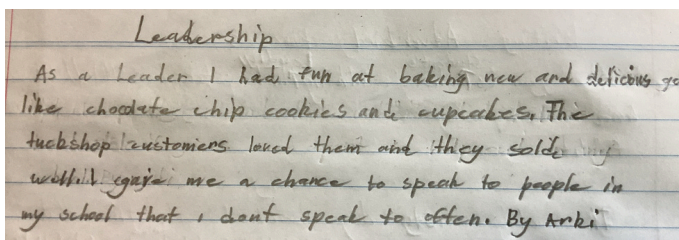 Leadership
As a Leader I had fun at baking new and delicious
like chocolate chip cookies and cupcakes. The
tuckshop customers loved them and they sold
well. I gave me a chance to speak to people in
my school that i dont speak to often. By Arki